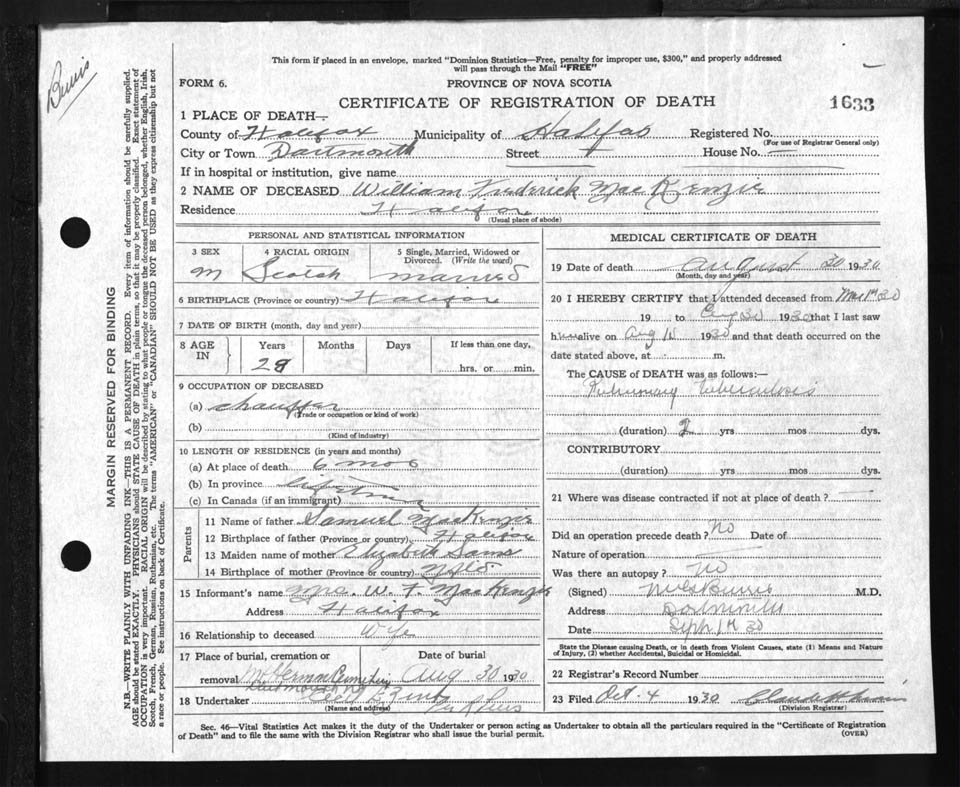 This form if placed in an envelope, marked "Dominion Statistics—Free, penalty for improper use, $300," and properly addressed
will pass through the Mail "FREE"
FORM 6.
PROVINCE OF NOVA SCOTIA
CERTIFICATE OF REGISTRATION OF DEATH
1633
1 PLACE OF DEATH—
County of Halifax Municipality of Halifax Registered No.
(For use of Registrar General only)
City or Town Dartmouth Street House No. —
If in hospital or institution, give name
2 NAME OF DECEASED William Frederick MacKenzie
Residence Halifax
(Usual place of abode)
PERSONAL AND STATISTICAL INFORMATION
3 SEX
M
4 RACIAL ORIGIN
Scotch
5 Single, Married, Widowed or
Divorced. (Write the word)
married
6 BIRTHPLACE (Province or country) Halifax
7 DATE OF BIRTH (month, day and year)
8 AGE
IN
Years
28
Months
Days
If less than one day,
hrs. or min.
9 OCCUPATION OF DECEASED
(a) chauffer
(Trade or occupation or kind of work)
(b)
(Kind of industry)
10 LENGTH OF RESIDENCE (in years and months)
(a) At place of death 6 mos
(b) In province lifetime
(c) In Canada (if an immigrant)
Parents
11 Name of father Samuel MacKenzie
12 Birthplace of father (Province or country) Halifax
13 Maiden name of mother Elizabeth Sams
14 Birthplace of mother (Province or country) Nfld
15 Informant's name Mrs. W. F. MacKenzie
Address Halifax
16 Relationship to deceased Wife
17 Place of burial, cremation or
removal Mt Herman Cemetery
Dartmouth NS
Date of burial
Aug 30 1930
18 Undertaker
(Name and address)
MEDICAL CERTIFICATE OF DEATH
19 Date of death August 30 1930
(Month, day and year)
20 I HEREBY CERTIFY that I attended deceased from 30
19 to Aug 30 1930 that I last saw
him alive on Aug 1930 and that death occurred on the
date stated above, at m.
The CAUSE of DEATH was as follows:—
Pulmonary tuberculosis
(duration) 2 yrs mos dys.
CONTRIBUTORY
(duration) yrs mos dys.
21 Where was disease contracted if not at place of death?
Did an operation precede death? No Date of
Nature of operation —
Was there an autopsy? No
(Signed) Burris M.D.
Address Dartmouth
Date Sept 1st 30
State the Disease causing Death, or in death from Violent Causes, state (1) Means and Nature
of Injury, (2) whether Accidental, Suicidal or Homicidal.
22 Registrar's Record Number
23 Filed Oct. 4 1930
(Division Registrar)
Sec. 46—Vital Statistics Act makes it the duty of the Undertaker or person acting as Undertaker to obtain all the particulars required in the "Certificate of Registration
of Death" and to file the same with the Division Registrar who shall issue the burial permit.
(OVER)
MARGIN RESERVED FOR BINDING
N.B.—WRITE PLAINLY WITH UNFADING INK—THIS IS A PERMANENT RECORD. Every item of information should be carefully supplied.
AGE should be stated EXACTLY. PHYSICIANS should STATE CAUSE OF DEATH in plain terms, so that it may be properly classified. Exact statement of
OCCUPATION is very important. RACIAL ORIGIN will be described by stating to what people or tongue the deceased person belonged, whether English, Irish,
Scotch, French, German, Russian, Ruthenian, etc. The terms "AMERICAN" or "CANADIAN" SHOULD NOT BE USED as they express citizenship but not
a race or people. See instructions on back of Certificate.